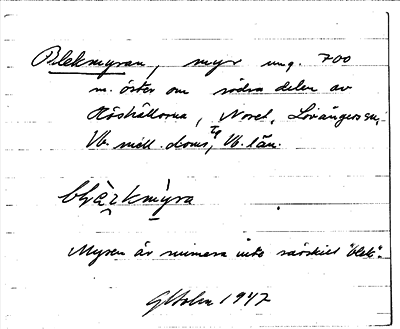 Blekmyran, myr ung. 700
m. öster om södra delen av
Röshällorna, Norel, Lövångers sn,
Vb. mell. doms, Vb. län.
Myren är numera inte särskilt "blek".
1947